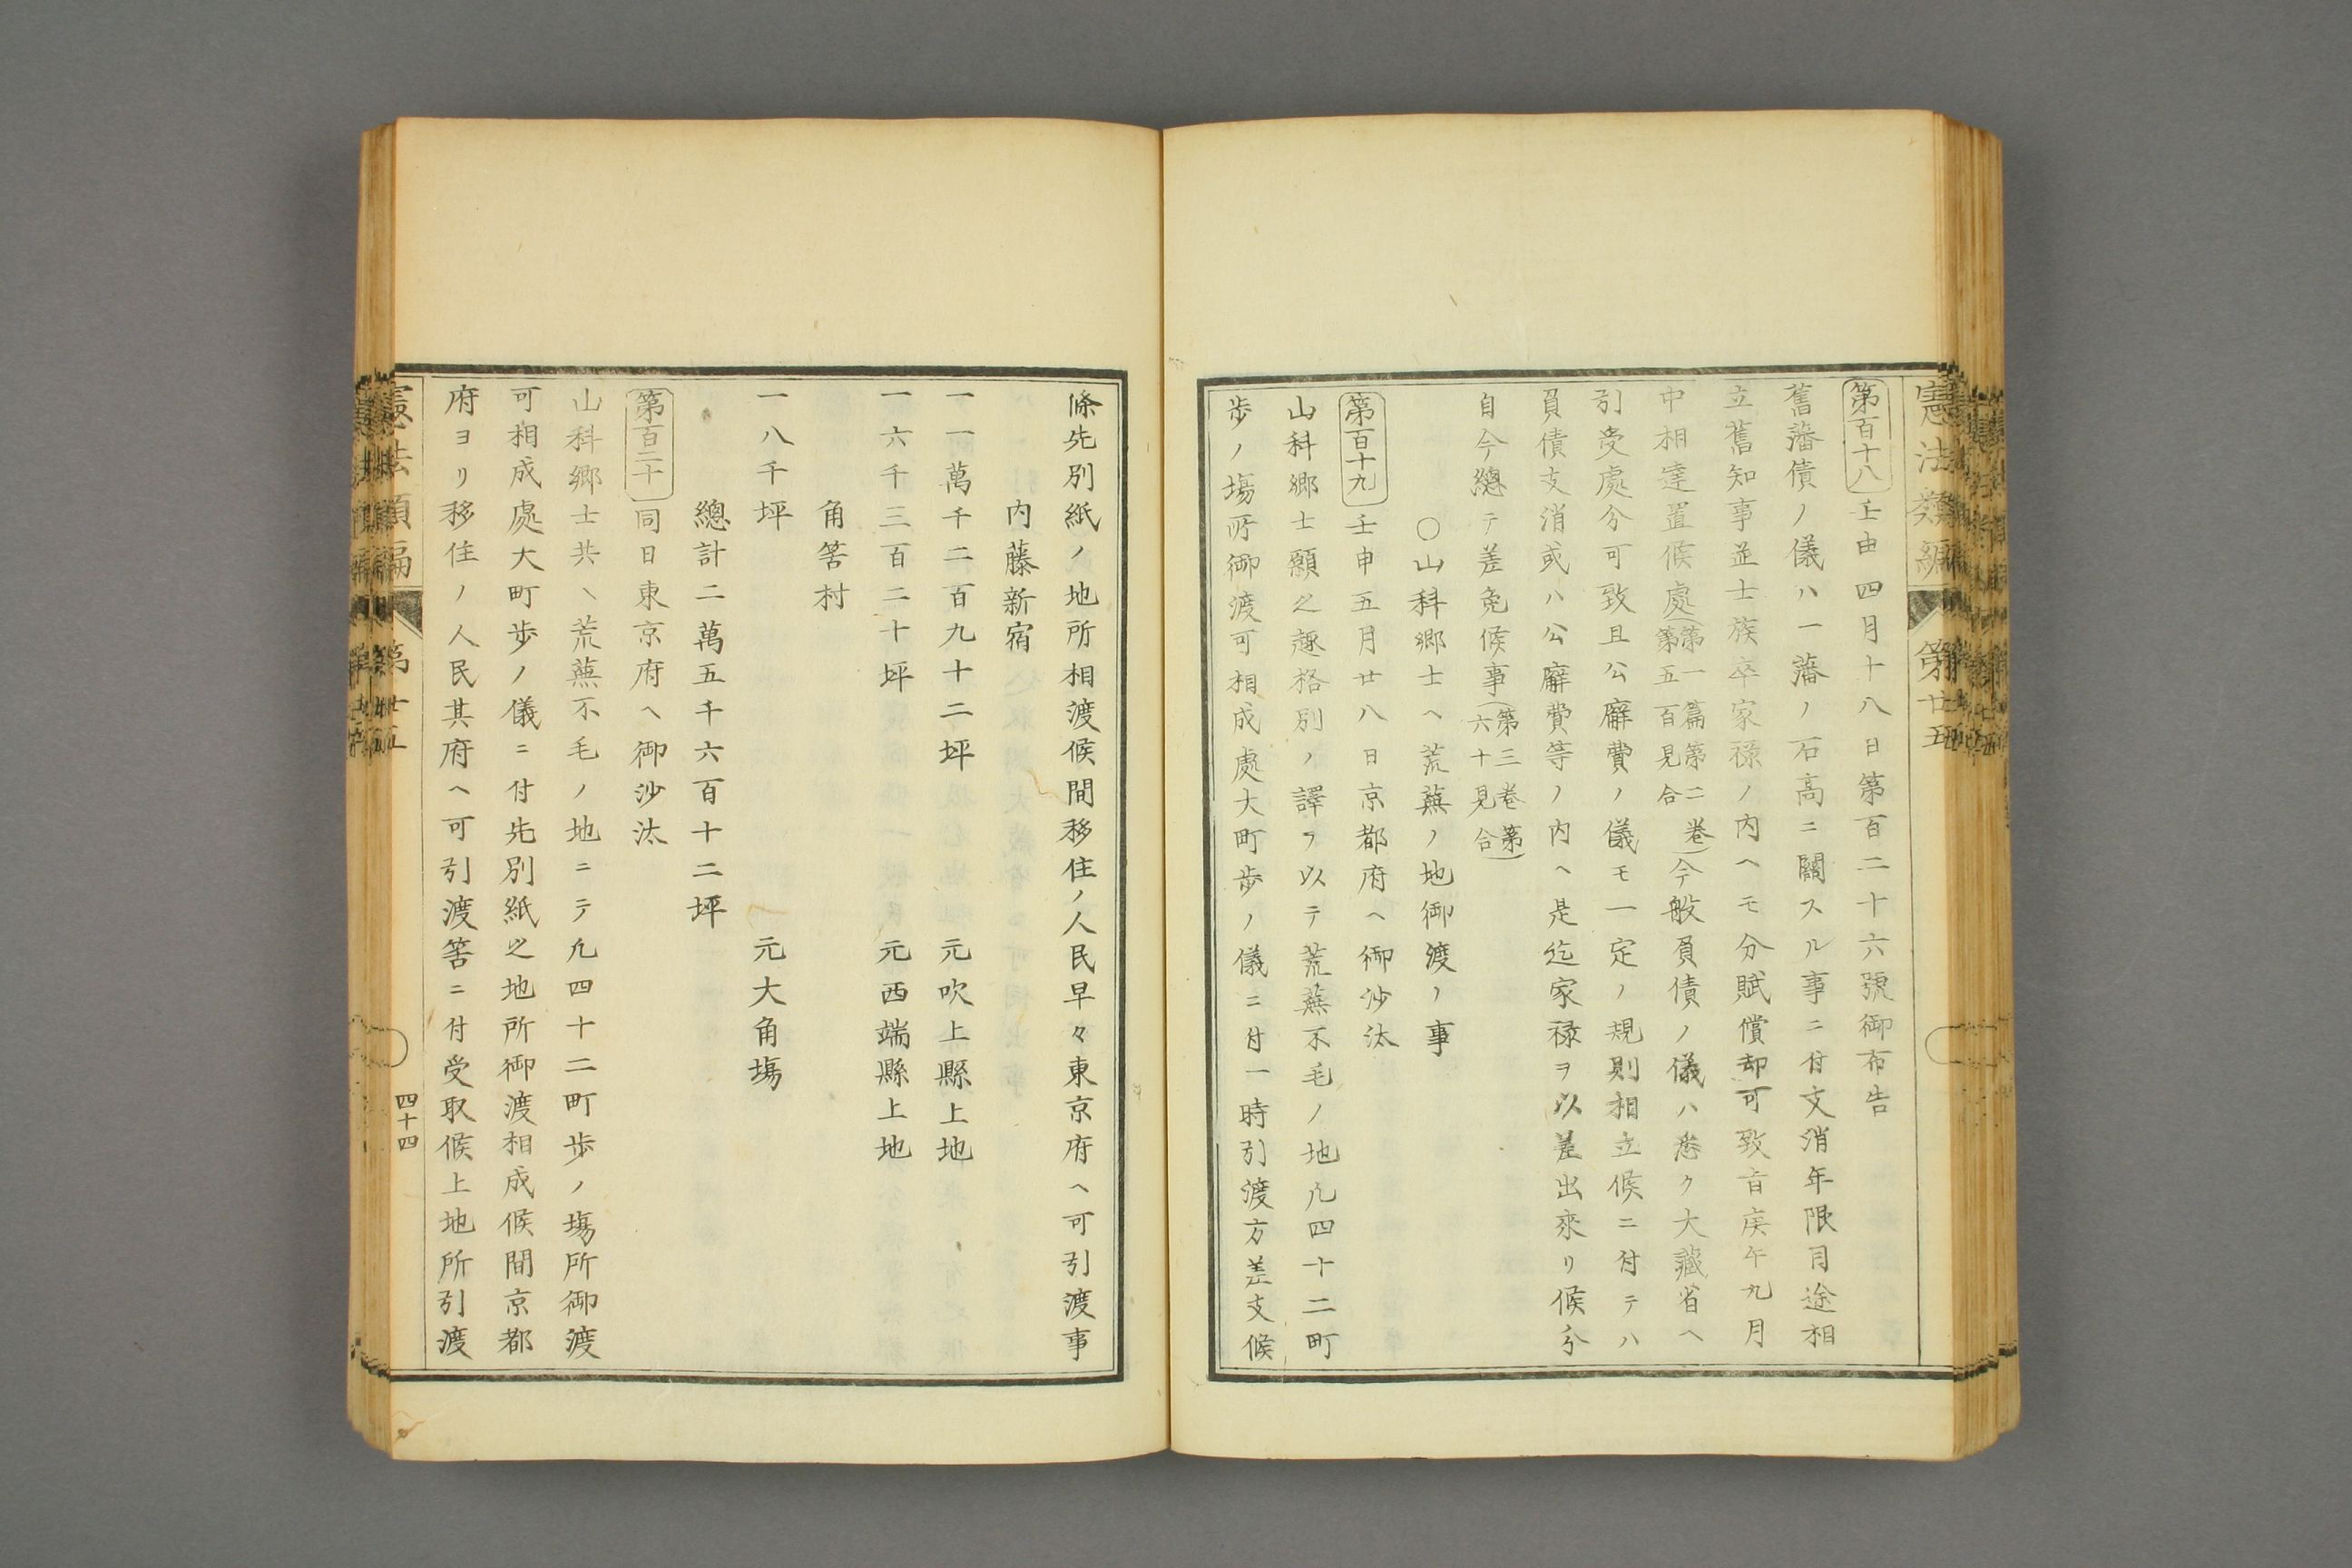 憲法類編 第廿五
第百十八 壬申四月十八日第百二十六號御布告
舊藩債ノ儀ハ一藩ノ石高ニ關スル事ニ付支消年限目途相
立舊知事並士族卒家禄ノ内ヘモ分賦償却可致旨庚午九月
中相達置候處(第一篇第二卷第五百見合)今般負債ノ儀ハ悉ク大藏省ヘ
引受處分可致且公廨費ノ儀モ一定ノ規則相立候ニ付テハ
負債支消或ハ公廨費等ノ内ヘ是迄家禄ヲ以差出來リ候分
自今總テ差免候事(第三卷第六十見合)
○山科郷士ヘ荒蕪ノ地御渡ノ事
第百十九 壬申五月廿八日京都府ヘ御沙汰
山科郷士願之趣格別ノ譯ヲ以テ荒蕪不毛ノ地凡四十二町
歩ノ塲所御渡可相成處大町歩ノ儀ニ付一時引渡方差支候
條先別紙ノ地所相渡候間移住ノ人民早々東京府ヘ可引渡事
内藤新宿
一一萬千二百九十二坪 元吹上縣上地
一六千三百二十坪 元西端縣上地
角筈村
一八千坪 元大角塲
總計二萬五千六百十二坪
第百二十 同日東京府ヘ御沙汰
山科郷士共ヘ荒蕪不毛ノ地ニテ凡四十二町歩ノ塲所御渡
可相成處大町歩ノ儀ニ付先別紙之地所御渡相成候間京都
府ヨリ移住ノ人民其府ヘ可引渡筈ニ付受取候上地所引渡
憲法類編 第廿五 四十四